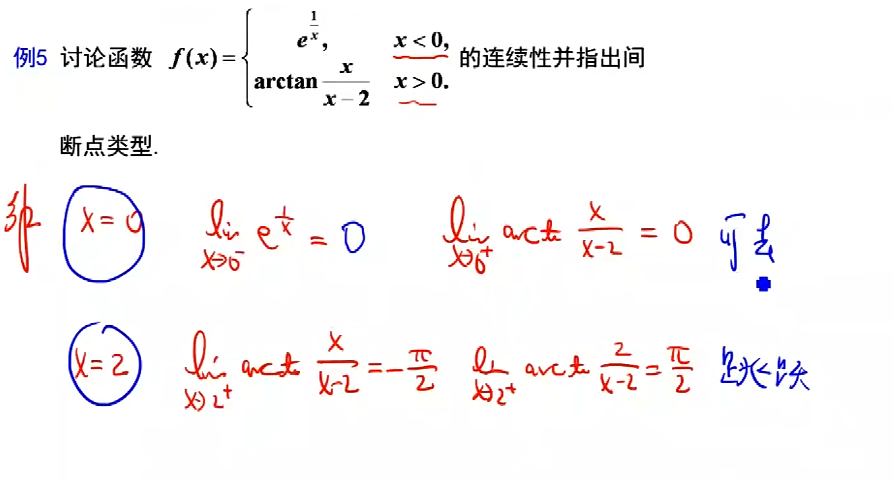 例5 讨论函数 f(x) = { e^{1/x}, x < 0, 的连续性并指出间
arctan x/(x − 2) x > 0.
断点类型.
解 x = 0 lim_{x→0⁻} e^{1/x} = 0 lim_{x→0⁺} arctan x/(x−2) = 0 可去
x = 2 lim_{x→2⁺} arctan x/(x−2) = −π/2 lim_{x→2⁺} arctan 2/(x−2) = π/2